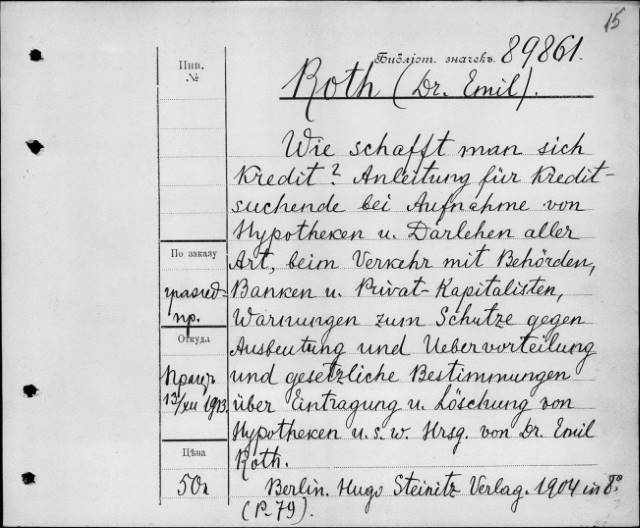 15
Библіот. значекъ 89861.
Инв.
№
Roth (Dr. Emil).
Wie schafft man sich
Kredit? Anleitung für Kredit-
suchende bei Aufnahme von
Hypotheken u. Darlehen aller
Art, beim Verkehr mit Behörden,
Banken u. Privat-Kapitalisten,
Warnungen zum Schutze gegen
Ausbeutung und Uebervorteilung
und gesetzliche Bestimmungen
über Eintragung u. Löschung von
Hypotheken u. s. w. Hrsg. von Dr. Emil
Roth.
Berlin. Hugo Steinitz Verlag. 1904 in 8°
(P. 79).
По заказу
пр.
Откуда
13/XII 1913.
Цѣна
50